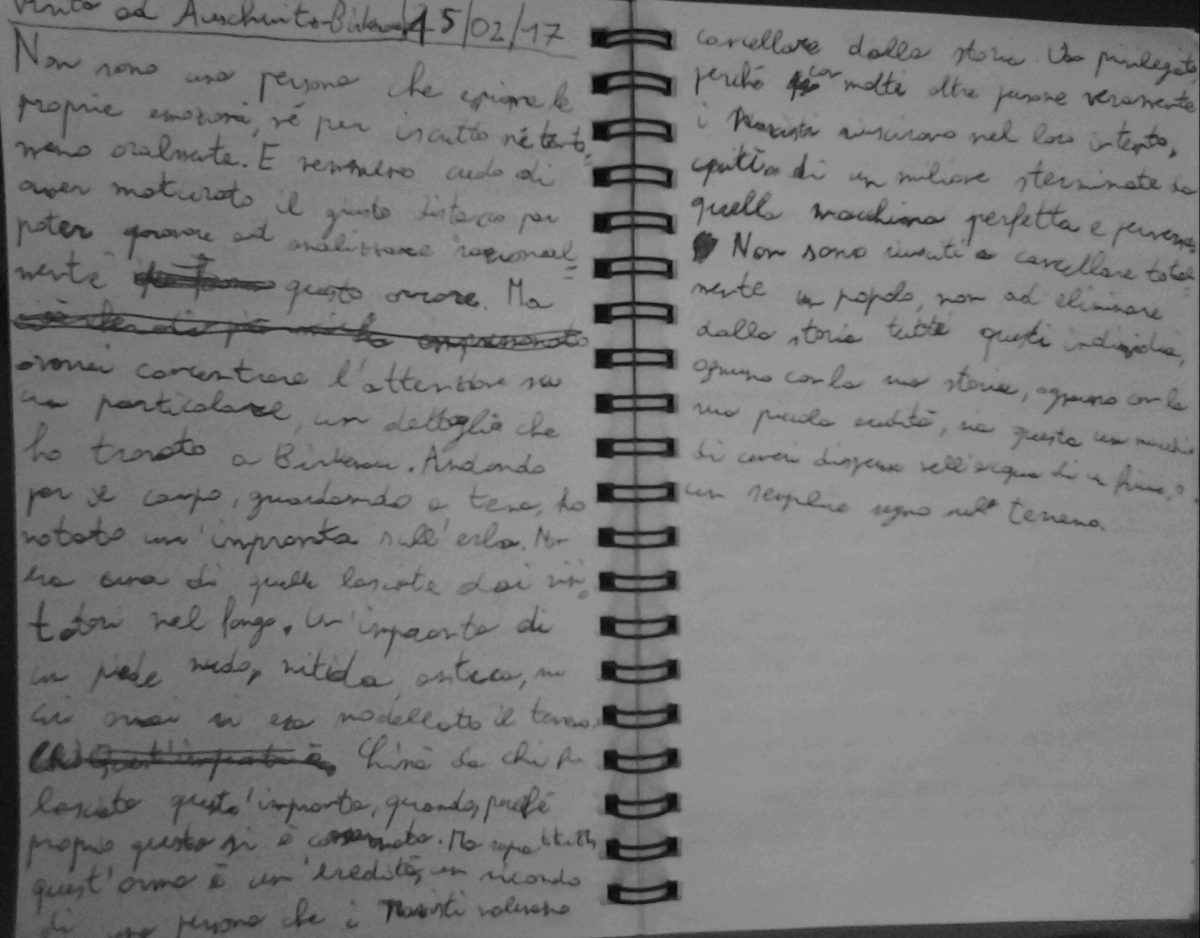 Visita ad Auschwitz-Birkenau 15/02/17
Non sono una persona che esprime le
proprie emozioni, né per iscritto né tanto=
meno oralmente. E nemmeno credo di
aver maturato il giusto distacco per
poter provare ad analizzare razional=
mente questo orrore. Ma
vorrei concentrare l'attenzione su
un particolare, un dettaglio che
ho trovato a Birkenau. Andando
per il campo, guardando a terra, ho
notato un'impronta sull'erba. Non
era una di quelle lasciate dai visi=
tatori nel fango. Un'impronta di
un piede nudo, nitida, antica, su
cui ormai si era modellato il terreno.
Chissà da chi fu
lasciata quest'impronta, quando, perché
proprio questa si è conservata. Ma soprattutto
quest'orma è un'eredità, un ricordo
di una persona che i nazisti volevano
cancellare dalla storia. Una privilegiata
perché con molte altre persone veramente
i nazisti riuscirono nel loro intento,
di un milione sterminate da
quella macchina perfetta e perversa.
Non sono riusciti a cancellare total=
mente un popolo, non ad eliminare
dalla storia tutti questi individui,
ognuno con la sua storia, ognuno con la
sua piccola eredità, sia questa un mucchio
di ceneri disperse nell'acqua di un fiume, o
un semplice segno sul terreno.